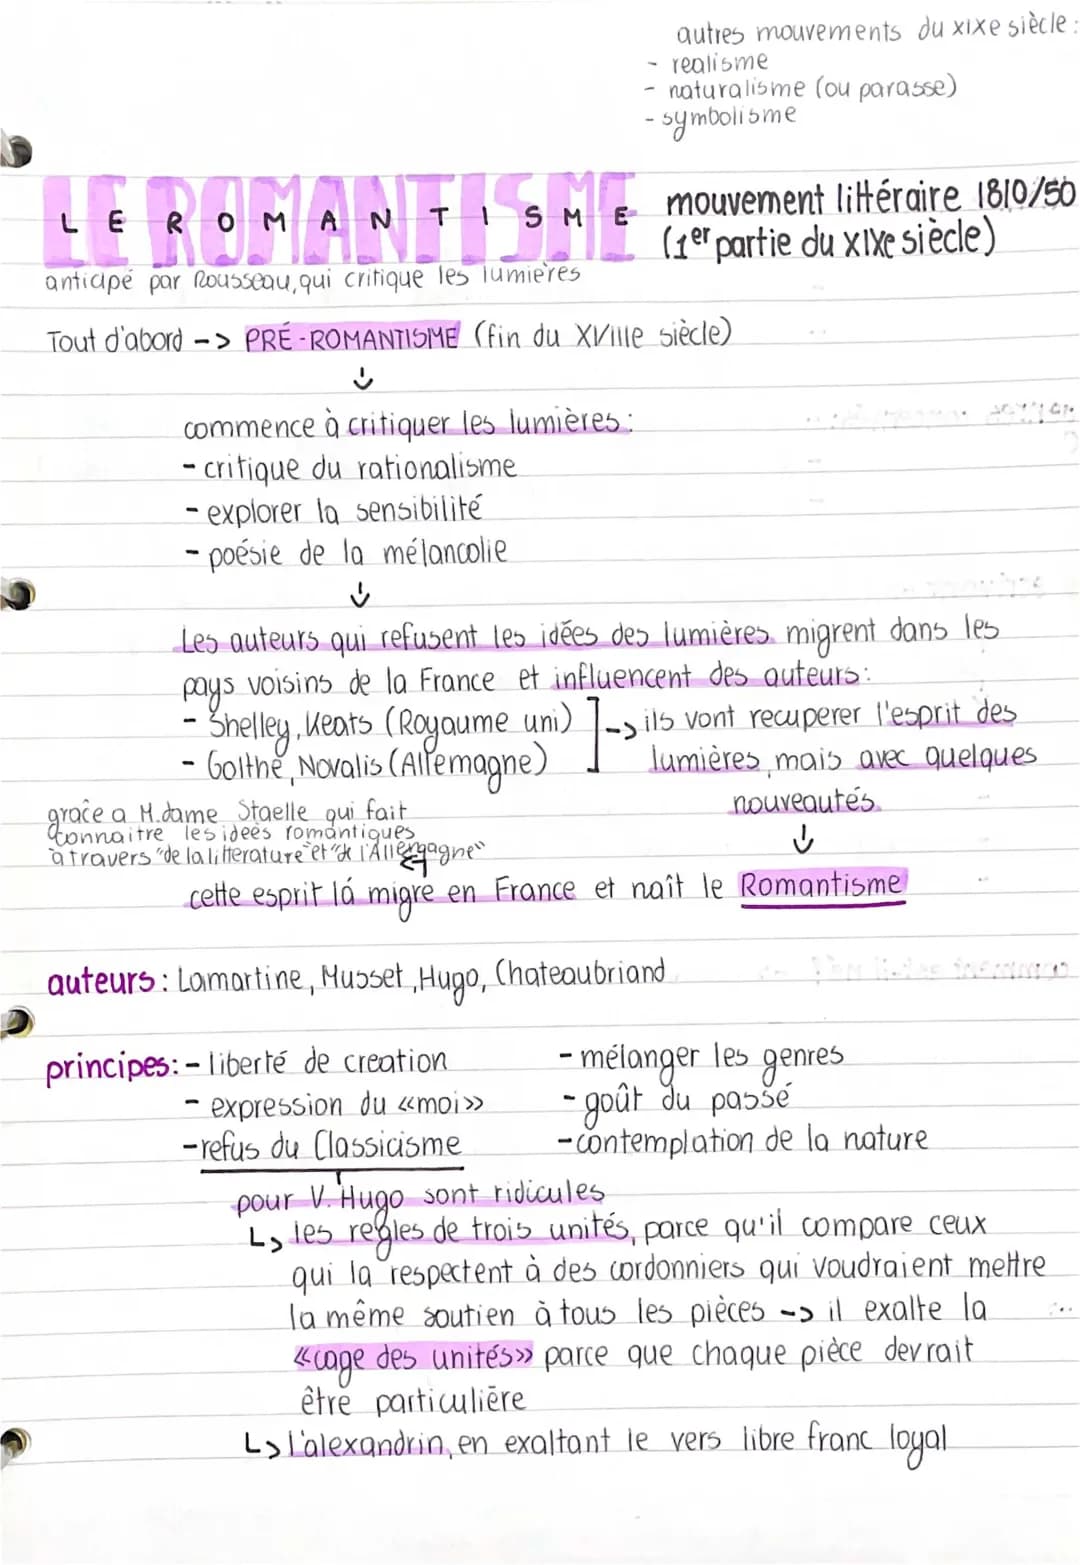 autres mouvements du XIXe siècle :
- realisme
- naturalisme (ou parasse)
- symbolisme
LE ROMANTISME
mouvement littéraire 1810/50
(1er partie du XIXe siècle)
anticipé par Rousseau, qui critique les lumières
Tout d'abord -> PRÉ-ROMANTISME (fin du XVIIIe siècle)
commence à critiquer les lumières :
- critique du rationalisme
- explorer la sensibilité
- poésie de la mélancolie
Les auteurs qui refusent les idées des lumières migrent dans les
pays voisins de la France et influencent des auteurs:
- Shelley, Keats (Royaume uni) ] -> ils vont recuperer l'esprit des
- Golthe, Novalis (Allemagne) lumières, mais avec quelques
nouveautés.
grâce a M.dame Staelle qui fait
connaitre les ideès romantiques
a travers "de la litterature et "de l'Allemgagne"
cette esprit lá migre en France et naît le Romantisme
auteurs : Lamartine, Musset, Hugo, Chateaubriand
principes: - liberté de creation - mélanger les genres
- expression du «moi» - goût du passé
- refus du Classicisme - contemplation de la nature
pour V. Hugo sont ridicules
↳ les regles de trois unités, parce qu'il compare ceux
qui la respectent à des cordonniers qui voudraient mettre
la même soutien à tous les pièces -> il exalte la
«cage des unités» parce que chaque pièce devrait
être particulière
↳ l'alexandrin, en exaltant le vers libre franc loyal